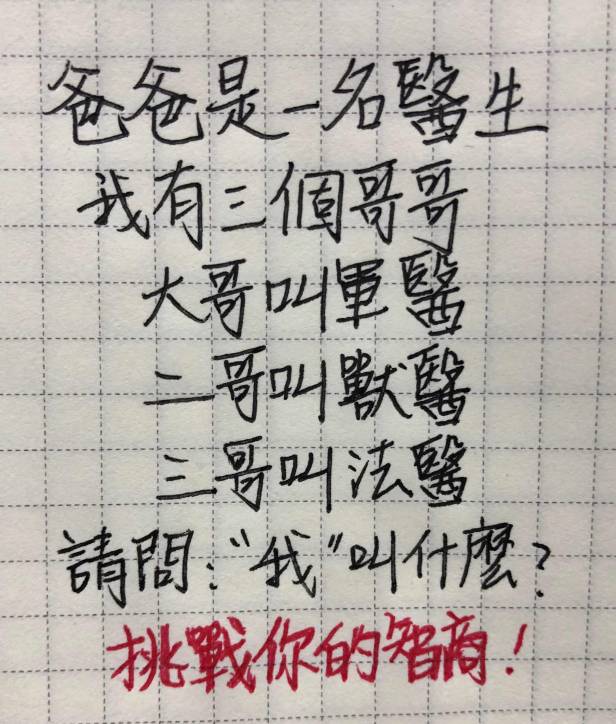 爸爸是一名醫生
我有三個哥哥
大哥叫軍醫
二哥叫獸醫
三哥叫法醫
請問:“我”叫什麼?
挑戰你的智商!